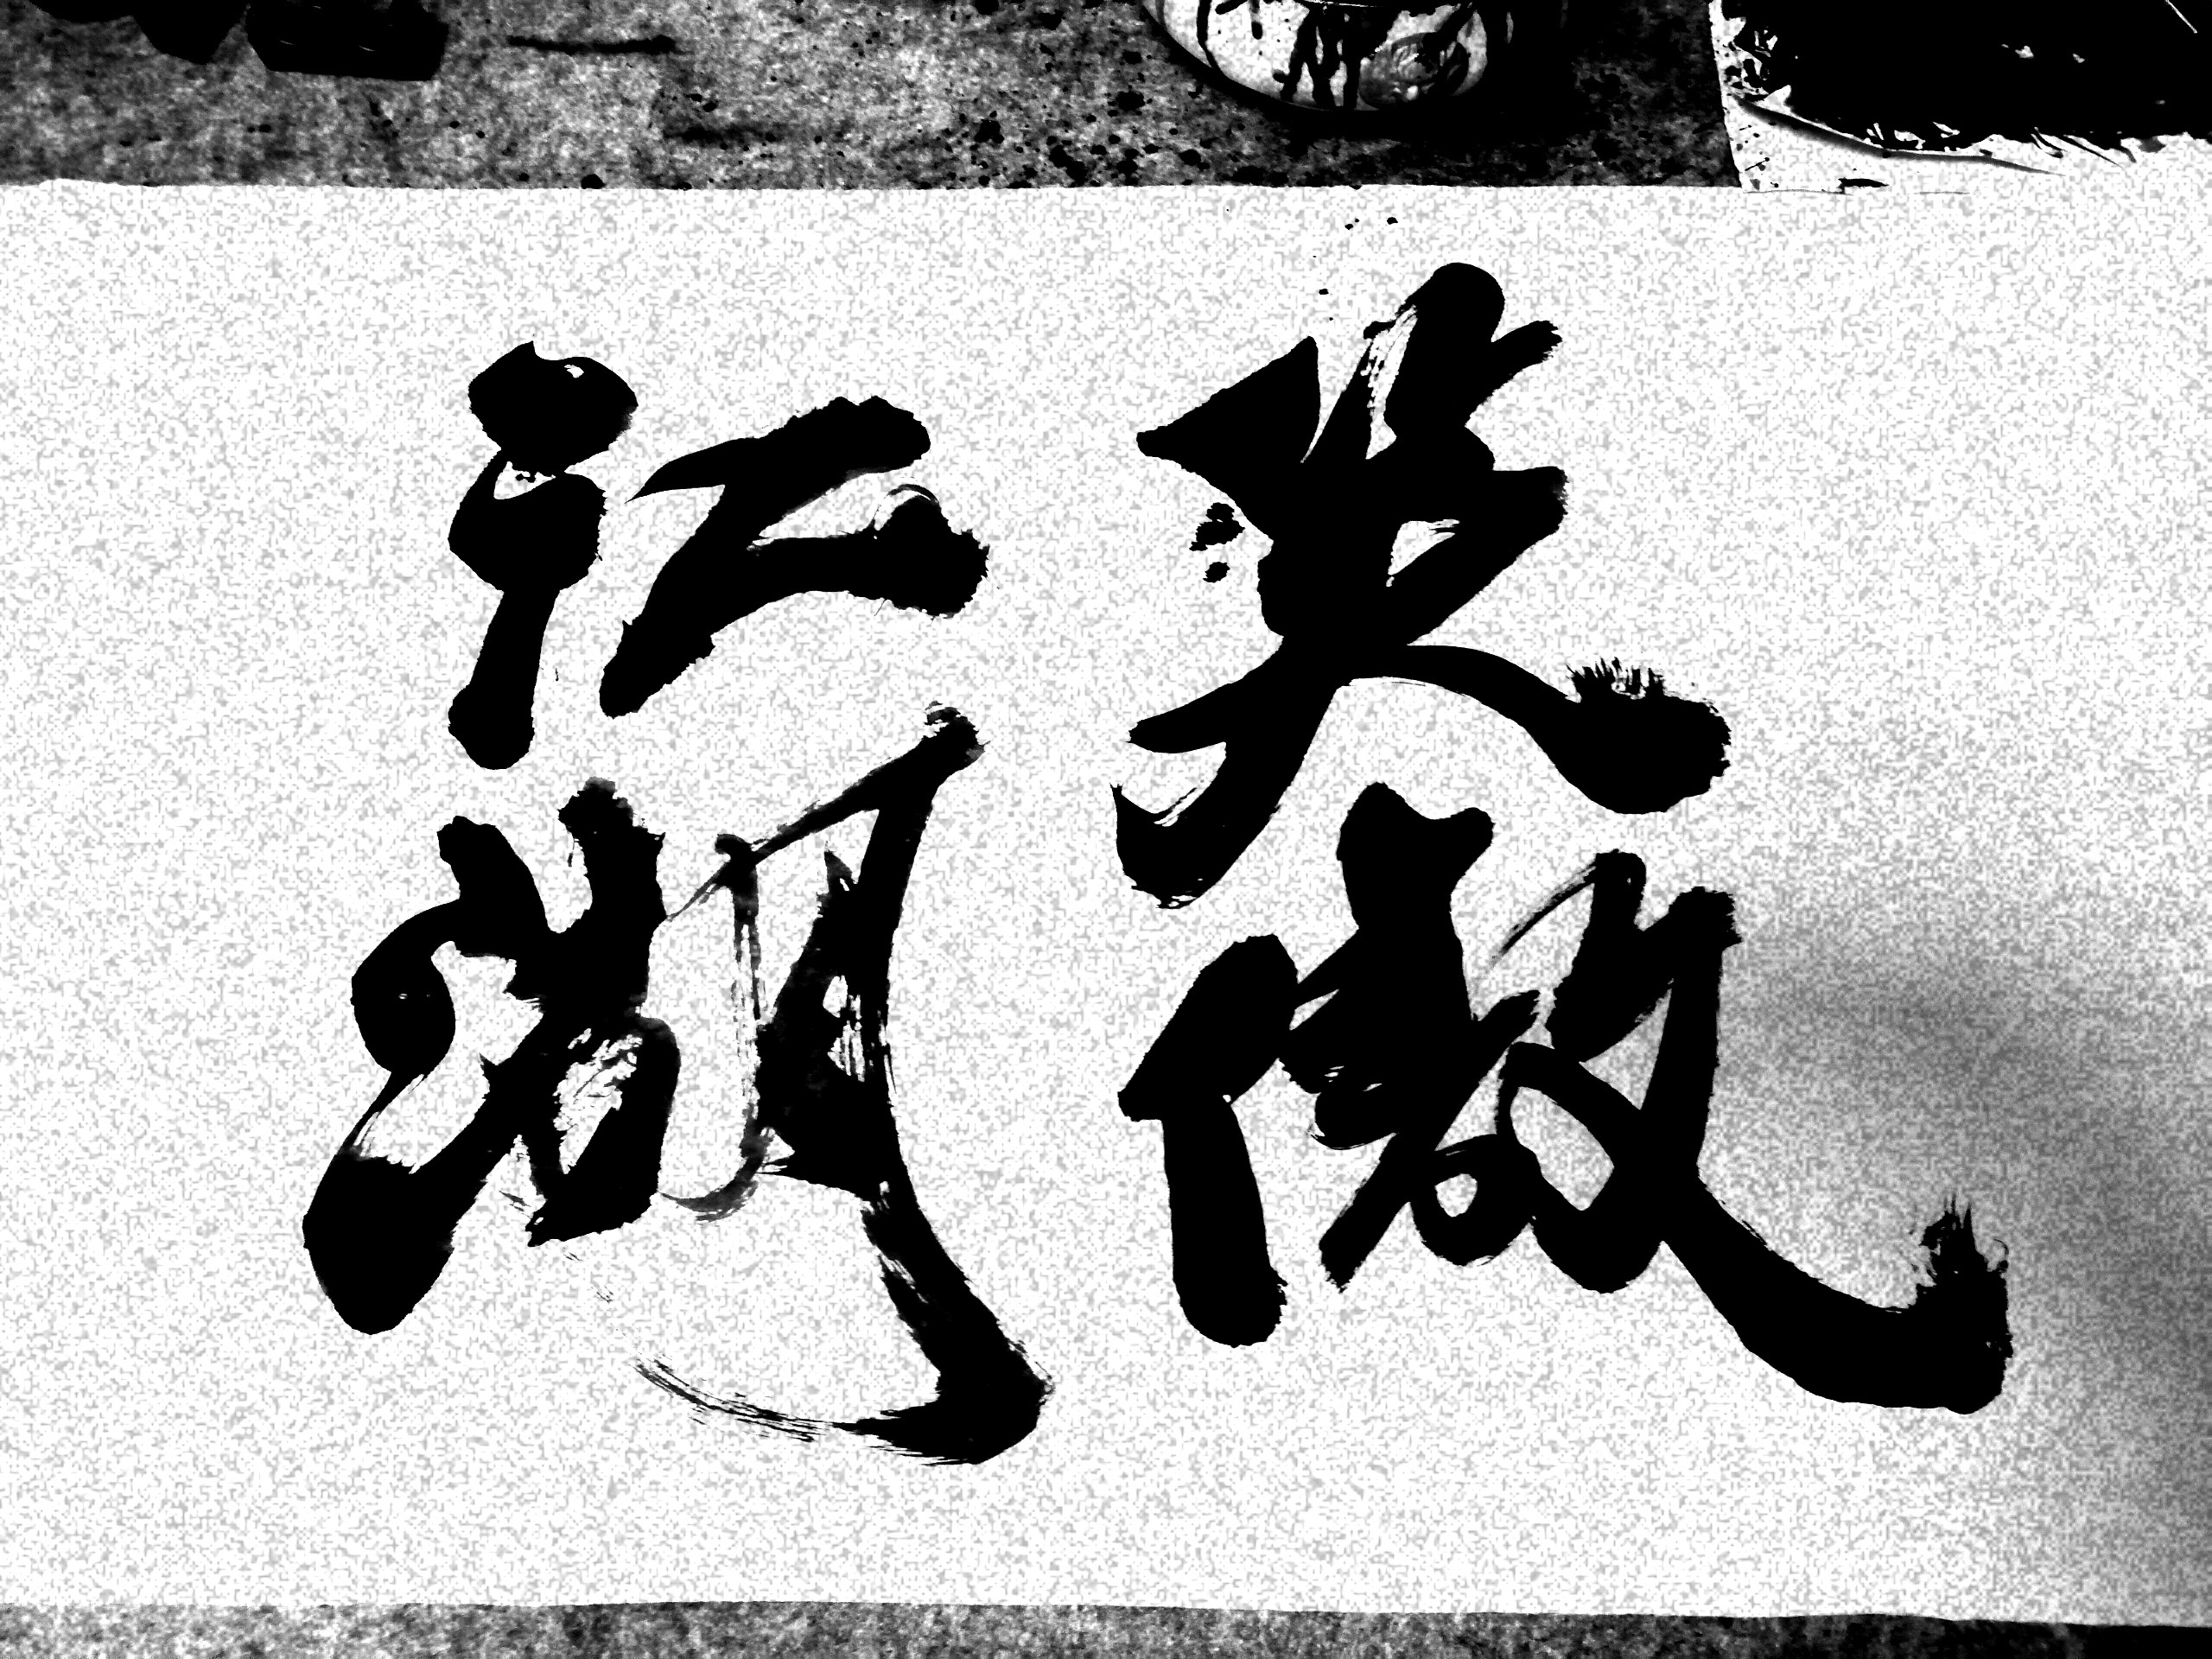 笑傲
江湖